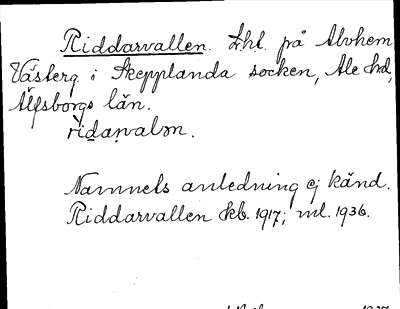 Riddarvallen. Lht. på Alvhem
Västerg. i Skepplanda socken, Ale hd,
Älfsborgs län.
ridaṛvalən.
Namnets anledning ej känd.
Riddarvallen kb. 1917; ml. 1936.